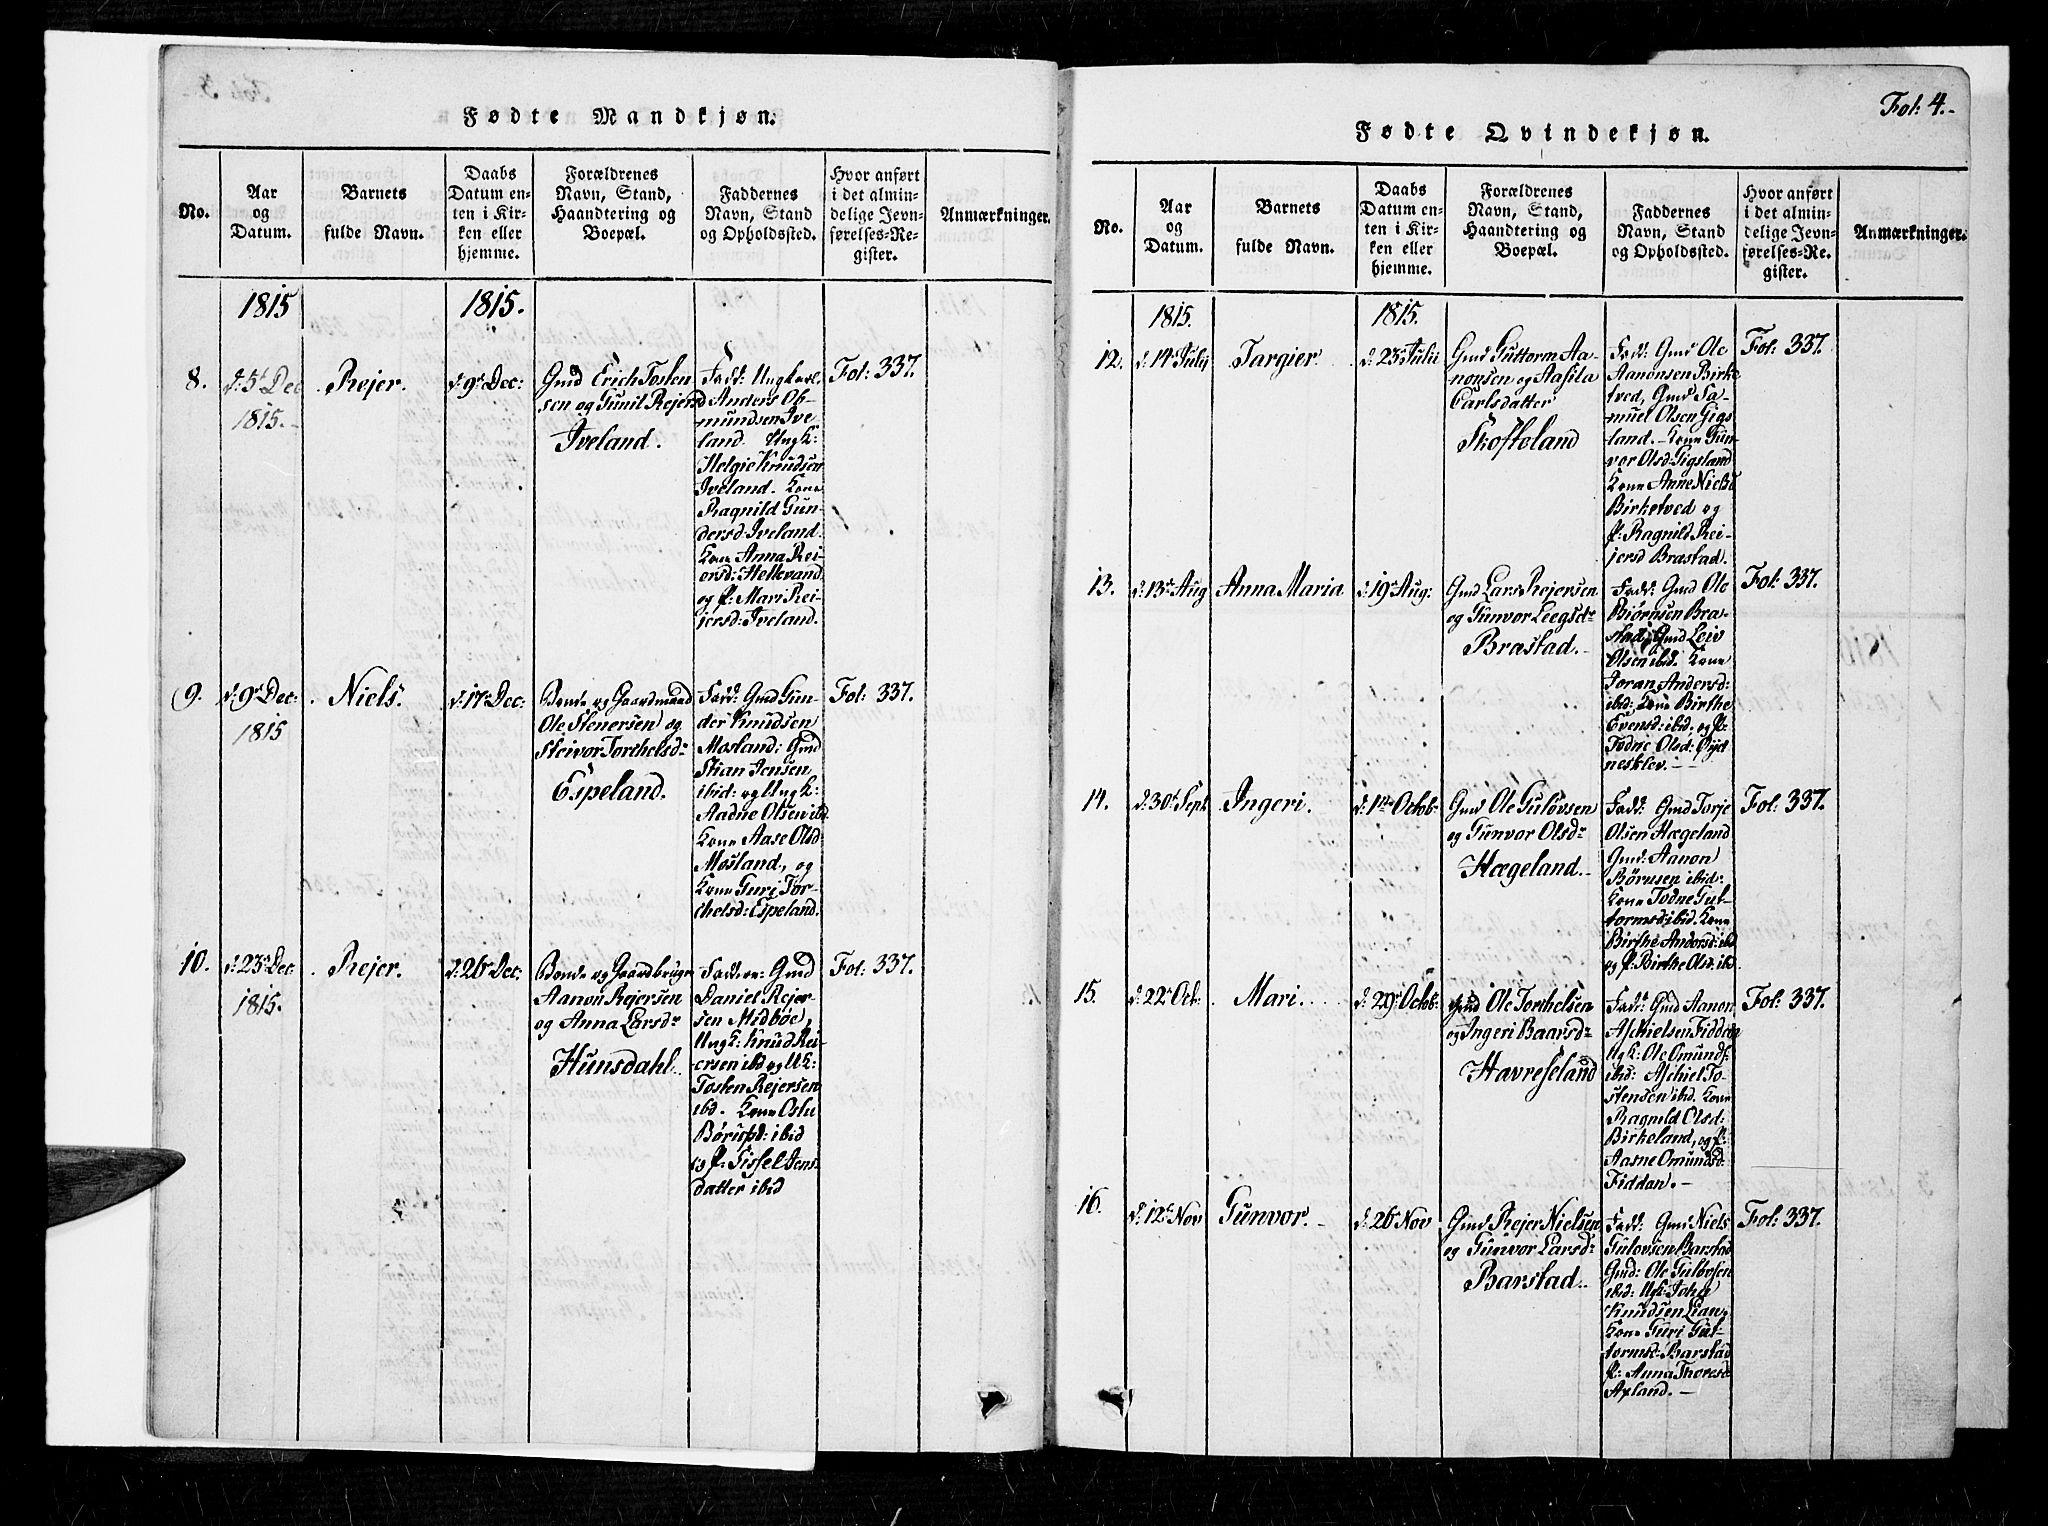 Fødte Mandkjøn.
No.
Aar
og
Datum.
Barnets
fulde Navn.
Daabs
Datum en-
ten i Kir-
ken eller
hjemme.
Forældrenes
Navn, Stand,
Haandtering og
Boepæl.
Faddernes
Navn, Stand
og Opholdssted.
Hvor anført
i det almin-
delige Jevn-
førelses-Re-
gister.
Anmærkninger.
1815
1815.
8.
d: 5t Dec
1815.
Rejer.
d: 9t Dec:
Gmd Erich Tosten
sen og Gunil Rejersd
Iveland.
Fadd: Ungkarl
Anders Os-
mundsen Ive
land. Ungk:
Helgie Knudsen
Iveland. Kone
Ragnild Gun
dersd Iveland.
Kone Anna Rei
ersd: Hellevand
og P: Mari Rei-
jersd: Iveland.
Fol: 337.
9.
d: 9t Dec:
1815
Niels.
d: 17t Dec:
Bonde og Gaardmand
Ole Stenersen og
Steivor Torchelsdr
Espeland.
Fadd: Gmd Gun-
der Knudsen
Mosland: Gmd
Stian Jensen
ibid: og Ungk:
Aadne Olsen ibd
Kone Aase Olsd
Mosland, og
Kone Guri Tor-
chelsd: Espeland.
Fol: 337.
10.
d: 23t Dec:
1815.
Rejer.
d: 26t Dec:
Bonde og Gaardbruger
Aanon Rejersen
og Anna Larsdr
Hunsdahl.
Faddere: Gmd
Daniel Rejer-
sen Midbøe,
Ungk: Knud Rei-
ersen ibd og UK:
Tosten Rejersen
ibd. Kone Oslu
Børuspd: ibid
og P: Sissel Jens
datter ibid
Fol: 337.
Fol: 4.
Fødte Qvindekjøn.
No.
Aar
og
Datum.
Barnets
fulde Navn.
Daabs
Datum en-
ten i Kir-
ken eller
hjemme.
Forældrenes
Navn, Stand,
Haandtering og
Boepæl.
Faddernes
Navn, Stand
og Opholdssted.
Hvor anført
i det almin-
delige Jevn-
førelses-Re-
gister.
Anmærkninger.
1815.
1815.
12.
d: 14t Julij
Targier.
d: 23t Julii
Gmd Guttorm Aa-
nonsen og Aasila
Carlsdatter
Skofteland
Fadd: Gmd Ole
Aanonsen Birke
tved, Gmd Sa-
muel Olsen Gigs
land. Kone Gun
vor Olsd: Gigsland
Kone Anne Nielsd
Birketved og
P: Ragnild Rei-
jersd Bræstad.
Fol: 337.
13.
d: 13t Aug
Anna Maria
d: 19t Aug:
Gmd Lars Rejersen
og Gunvor Leegsdr
Bræstad.
Fadd: Gmd Ole
Biørnsen Bræ-
stad, Gmd Leiv
Olsen ibd. Kone
Joran Andersd:
ibid: Kone Birthe
Evensd: ibid: og P:
Todne Olsd: Øyet
nesklev.
Fol: 337.
14.
d: 30t Sept
Ingeri.
d: 1te Octob:
Gmd Ole Gulovsen
og Gunvor Olsdr
Hægeland.
Fadd: Gmd Torje
Olsen Hægeland
Gmd: Aanon
Børusen ibid:
Kone Todne Gut-
tormsd: ibid. Kone
Birthe Andersd: ibd
og P: Birthe Olsd: ibd.
Fol: 337.
15.
d: 22t Oct:
Mari.
d: 29t Octob:
Gmd Ole Torchelsen
og Ingeri Baarsdr
Havreseland
Fadd: Gmd Aanon
Aschielsen Fiddan
Ugk: Ole Omunds:
ibid: Aschiel To-
stensen ibid. Kone
Ragnild Olsd:
Birkeland, og P:
Aasne Omundsd:
Fiddan.
Fol: 337.
16.
d: 12t Nov
Gunvor.
d: 26 Nov
Gmd Rejer Nielsen
og Gunvor Larsdr
Barstad.
Fadd: Gmd Niels
Gulovsen Barstad
Gmd: Ole Gulovsen
ibid: Ugk: John
Knudsen Lian,
Kone Guri Gut-
tormsd: Barstad
P: Anna Thoresd
Apland.
Fol: 337.